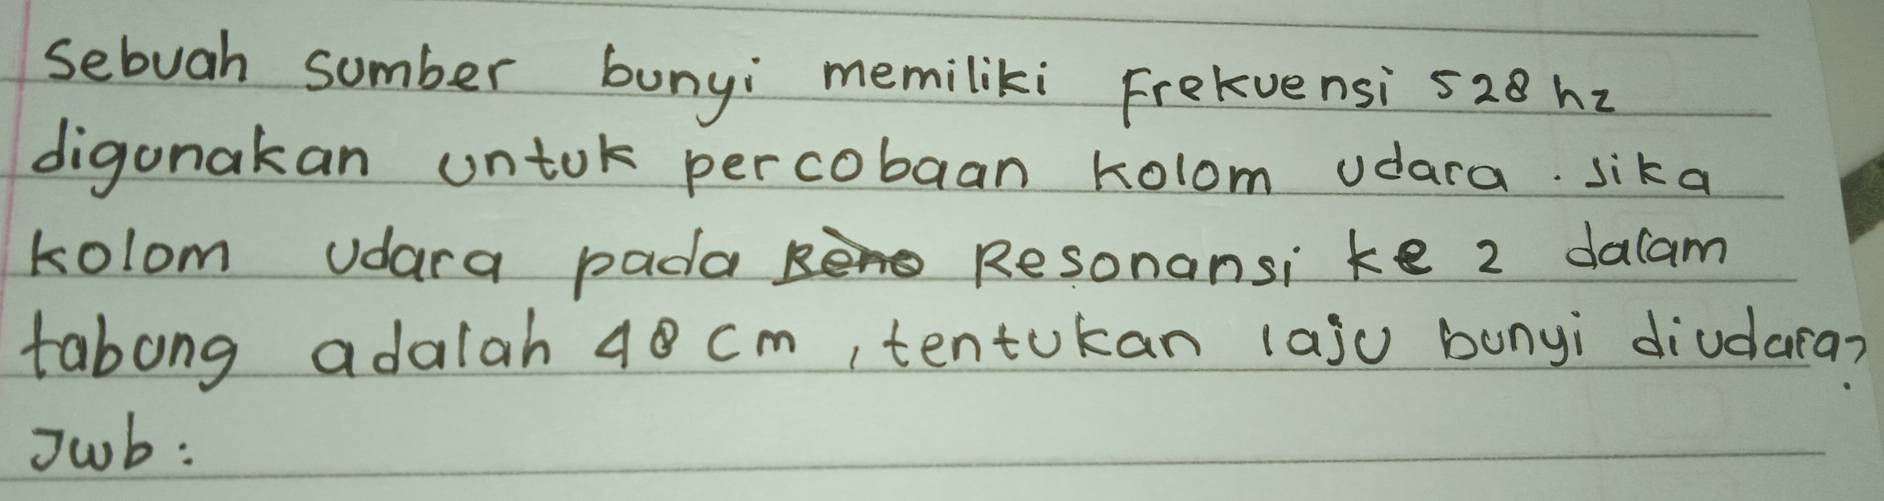 Sebuah sumber bunyi memiliki Frekuensi 528 hz
digunakan untuk percobaan kolom udara. Jika
kolom udara pada Reso Resonansi ke 2 dalam
tabung adalah 48 cm, tentukan laju bunyi diudara?
Jwb: